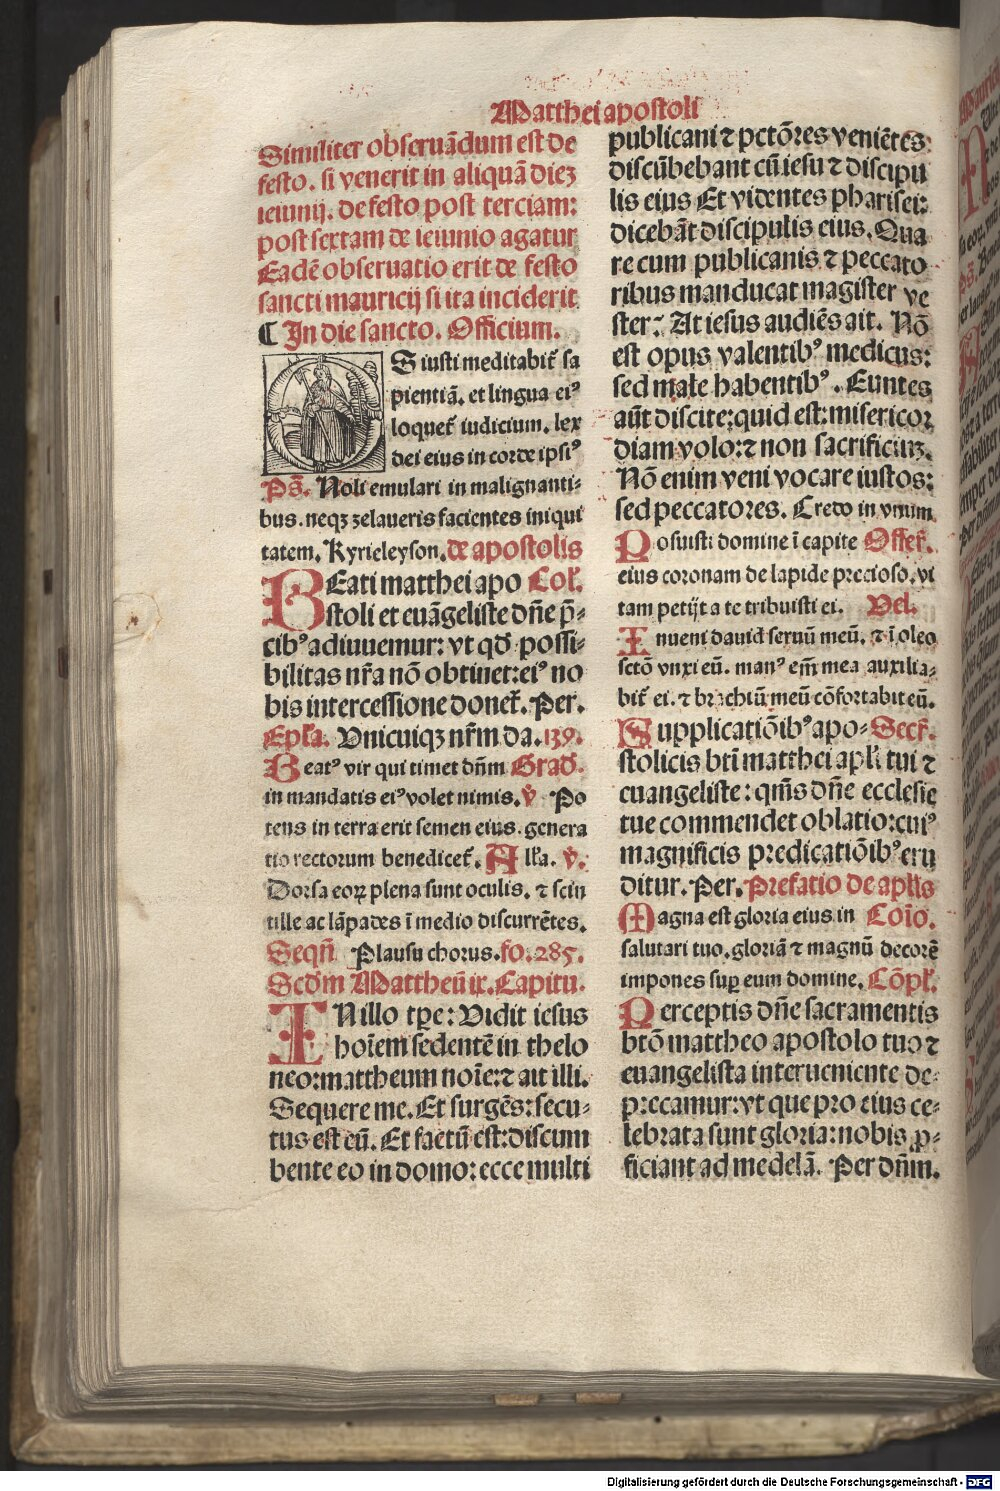 Matthei apostoli
Similiter obseruãdum est de
festo. si venerit in aliquã diez
ieiunij. de festo post terciam:
post sextam de ieiunio agatur
Eadẽ obseruatio erit de festo
sancti mauricij si ita inciderit
¶ In die sancto. Officium.
OS iusti meditabit̃ sa
pientiã. et lingua eiꝰ
loquet̃ iudicium. lex
dei eius in corde ipsiꝰ
Ps̃. Noli emulari in malignanti-
bus. neqꝫ zelaueris facientes iniqui
tatem. Kyrieleyson. de apostolis
BEati matthei apo Col̃.
stoli et euãgeliste dñe p̃-
cibꝰ adiuuemur: vt qď possi-
bilitas nr̃a nõ obtinet: eiꝰ no
bis intercessione donet̃. Per.
Epl̃a. Vnicuiqꝫ nr̃m da. 139.
Beatꝰ vir qui timet dñm Grad̃.
in mandatis eiꝰ volet nimis. ṽ Po
tens in terra erit semen eius. genera
tio rectorum benedicet̃. All̃a. ṽ.
Dorsa eoꝝ plena sunt oculis. ⁊ scin
tille ac lãpades ĩ medio discurrẽtes.
Seqñ Plausu chorus. fo. 285.
Scďm Mattheũ ix. Capitu.
IN illo tꝑe: Vidit iesus
hoĩem sedentẽ in thelo
neo: mattheum noĩe: ⁊ ait illi.
Sequere me. Et surgẽs: secu-
tus est eũ. Et factũ est: discum
bente eo in domo: ecce multi
publicani ⁊ pctõres veniẽtes
discũbebant cũ iesu ⁊ discipu
lis eius Et videntes pharisei:
dicebãt discipulis eius. Qua
re cum publicanis ⁊ peccato
ribus manducat magister ve
ster: At iesus audiẽs ait. Nõ
est opus valentibꝰ medicus:
sed male habentibꝰ. Euntes
aũt discite: quid est: misericor
diam volo: ⁊ non sacrificiuꝫ.
Nõ enim veni vocare iustos:
sed peccatores. Credo in vnum
Posuisti domine ĩ capite Offer̃.
eius coronam de lapide precioso. vi
tam petijt a te tribuisti ei. Vel.
Inueni dauid seruũ meũ. ⁊ ĩ oleo
sctõ vnxi eũ. manꝰ em̃ mea auxilia-
bit̃ ei. ⁊ brachiũ meũ cõfortabit eũ.
Supplicatiõibꝰ apo- Secr̃.
stolicis bt̃i matthei apl̃i tui ⁊
euangeliste: qm̃s dñe ecclesie
tue commendet oblatio: cuiꝰ
magnificis predicatiõibꝰ eru
ditur. Per. Prefatio de apl̃is
Magna est gloria eius in Coĩo.
salutari tuo. gloriã ⁊ magnũ decorẽ
impones suꝑ eum domine. Cõpl̃.
Perceptis dñe sacramentis
btõ mattheo apostolo tuo ⁊
euangelista interueniente de-
precamur: vt que pro eius ce-
lebrata sunt gloria: nobis ꝓ-
ficiant ad medelã. Per dñm.
Digitalisierung gefördert durch die Deutsche Forschungsgemeinschaft - DFG